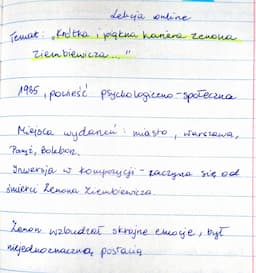 Lekcja online
Temat: „Krótka i piękna kariera Zenona
Ziembiewicza..."
1935, powieść psychologiczno-społeczna
Miejsca wydarzeń: miasto, Warszawa,
Paryż, Boleborza.
Inwersja w kompozycji - zaczyna się od
śmierci Zenona Ziembiewicza.
Zenon wzbudzał skrajne emocje, był
niejednoznaczną postacią